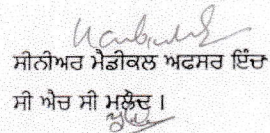 ਸੀਨੀਅਰ ਮੈਡੀਕਲ ਅਫਸਰ ਇੰਚਾ
ਸੀ ਐਚ ਸੀ ਮਲੌਦ ।